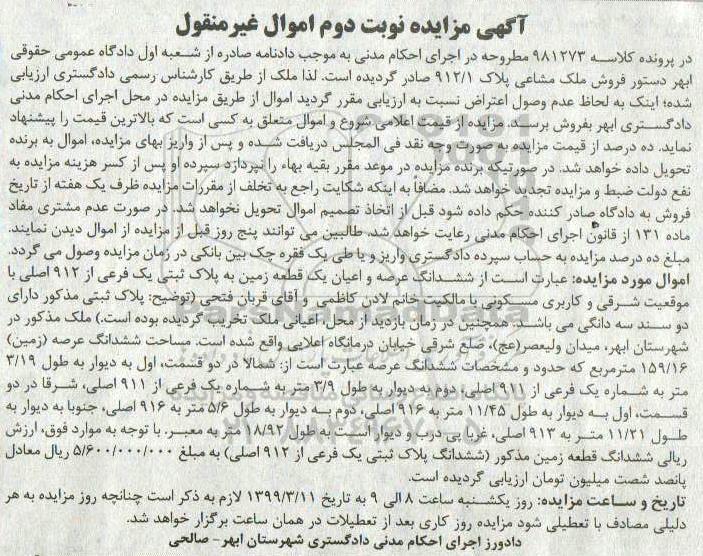 آگهی مزایده نوبت دوم اموال غیرمنقول
در پرونده کلاسه ۹۸۱۲۷۳ مطروحه در اجرای احکام مدنی به موجب دادنامه صادره از شعبه اول دادگاه عمومی حقوقی
ابهر دستور فروش ملک مشاعی پلاک ۹۱۲/۱ صادر گردیده است. لذا ملک از طریق کارشناس رسمی دادگستری ارزیابی
شده؛ اینک به لحاظ عدم وصول اعتراض نسبت به ارزیابی مقرر گردید اموال از طریق مزایده در محل اجرای احکام مدنی
دادگستری ابهر بفروش برسد. مزایده از قیمت اعلامی شروع و اموال متعلق به کسی است که بالاترین قیمت را پیشنهاد
نماید. ده درصد از قیمت مزایده به صورت وجه نقد فی المجلس دریافت شده و پس از واریز بهای مزایده، اموال به برنده
تحویل داده خواهد شد. در صورتیکه برنده مزایده در موعد مقرر بقیه بهاء را نپردازد سپرده او پس از کسر هزینه مزایده به
نفع دولت ضبط و مزایده تجدید خواهد شد. مضافا به اینکه شکایت راجع به تخلف از مقررات مزایده ظرف یک هفته از تاریخ
فروش به دادگاه صادر کننده حکم داده شود قبل از اتخاذ تصمیم اموال تحویل نخواهد شد. در صورت عدم مشتری مفاد
ماده ۱۳۱ از قانون اجرای احکام مدنی رعایت خواهد شد. طالبین می توانند پنج روز قبل از مزایده از اموال دیدن نمایند.
مبلغ ده درصد مزایده به حساب سپرده دادگستری واریز و یا طی یک فقره چک بین بانکی در زمان مزایده وصول می گردد.
اموال مورد مزایده: عبارت است از ششدانگ عرصه و اعیان یک قطعه زمین به پلاک ثبتی یک فرعی از ۹۱۲ اصلی با
موقعیت شرقی و کاربری مسکونی با مالکیت خانم لادن کاظمی و آقای قربان فتحی (توضیح: پلاک ثبتی مذکور دارای
دو سند سه دانگی می باشد. همچنین در زمان بازدید از محل، اعیانی ملک تخریب گردیده بوده است.) ملک مذکور در
شهرستان ابهر، میدان ولیعصر(عج)، ضلع شرقی خیابان درمانگاه اعلایی واقع شده است. مساحت ششدانگ عرصه (زمین)
۱۵۹/۱۶ مترمربع که حدود و مشخصات ششدانگ عرصه عبارت است از: شمالا در دو قسمت، اول به دیوار به طول ۳/۱۹
متر به شماره یک فرعی از ۹۱۱ اصلی، دوم به دیوار به طول ۳/۹ متر به شماره یک فرعی از ۹۱۱ اصلی، شرقا در دو
قسمت، اول به دیوار به طول ۱۱/۴۵ متر به ۹۱۶ اصلی، دوم به دیوار به طول ۵/۶ متر به ۹۱۶ اصلی، جنوبا به دیوار به
طول ۱۱/۲۱ متر به ۹۱۳ اصلی، غربا پی درب و دیوار است به طول ۱۸/۹۲ متر به معبر. با توجه به موارد فوق، ارزش
ریالی ششدانگ قطعه زمین مذکور (ششدانگ پلاک ثبتی یک فرعی از ۹۱۲ اصلی) به مبلغ ۵/۶۰۰/۰۰۰/۰۰۰ ریال معادل
پانصد شصت میلیون تومان ارزیابی گردیده است.
تاریخ و ساعت مزایده: روز یکشنبه ساعت ۸ الی ۹ به تاریخ ۱۳۹۹/۳/۱۱ لازم به ذکر است چنانچه روز مزایده به هر
دلیلی مصادف با تعطیلی شود مزایده روز کاری بعد از تعطیلات در همان ساعت برگزار خواهد شد.
دادورز اجرای احکام مدنی دادگستری شهرستان ابهر- صالحی